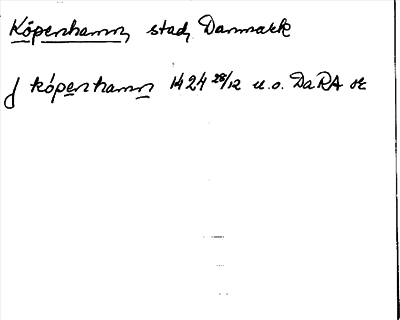 Köpenhamn, stad, Danmark
J köpenhamn 1424 28/12 u.o. DaRA or